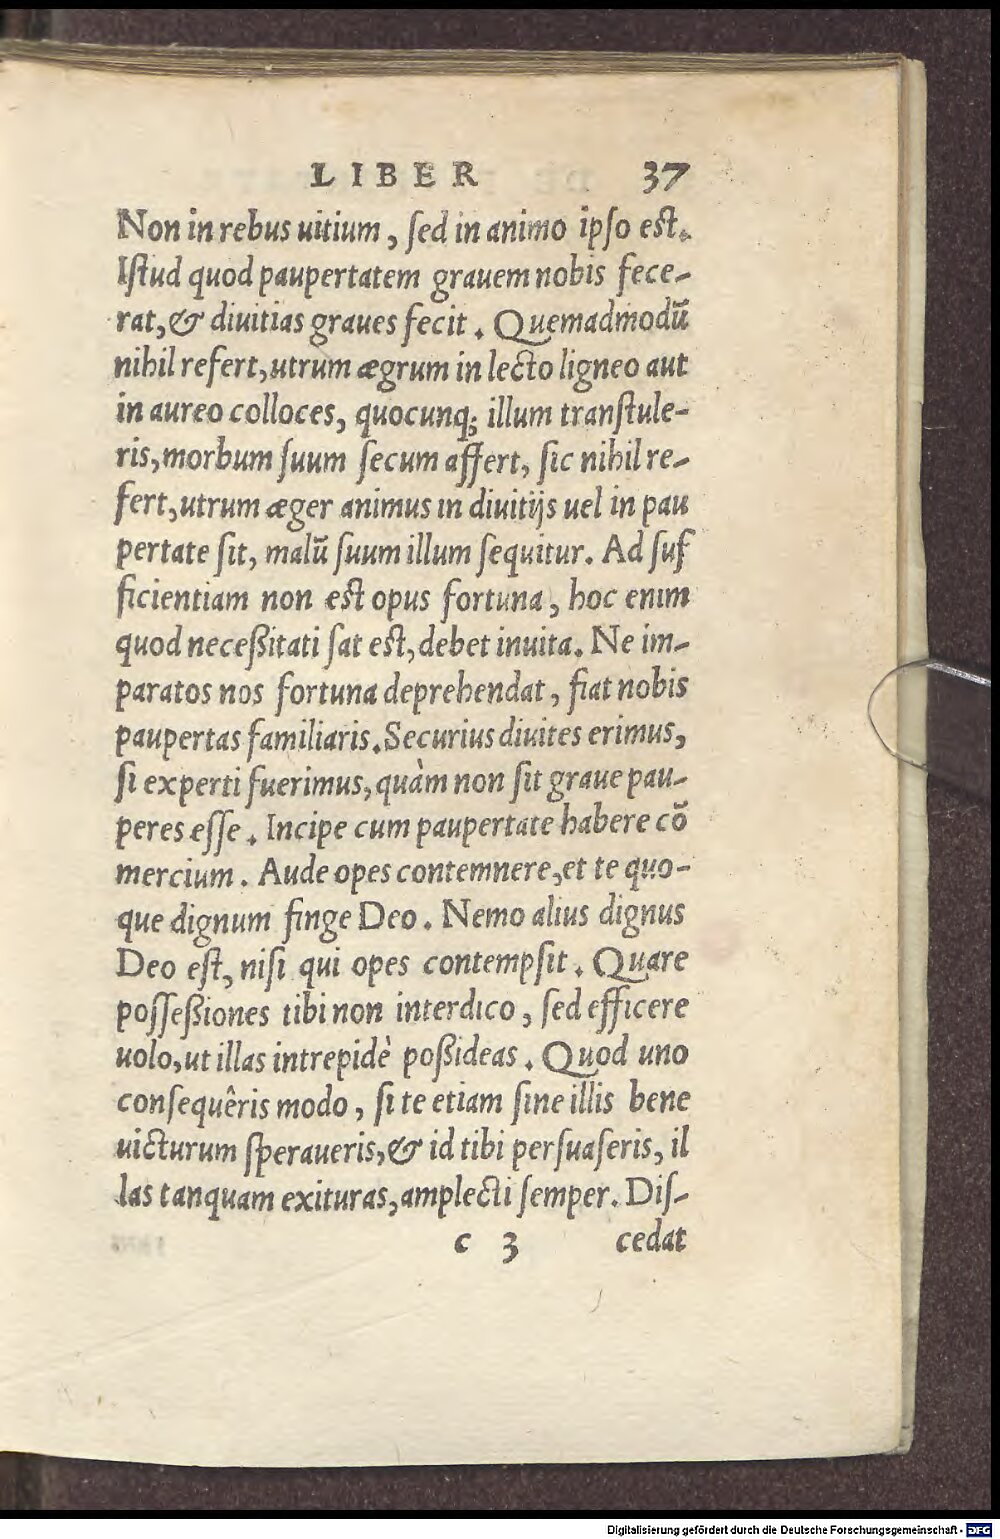 LIBER 37
Non in rebus uitium, ſed in animo ipſo eſt.
Iſtud quod paupertatem grauem nobis fece-
rat, & diuitias graues fecit. Quemadmodū
nihil refert, utrum ægrum in lecto ligneo aut
in aureo colloces, quocunq; illum tranſtule-
ris, morbum ſuum ſecum affert, ſic nihil re-
fert, utrum æger animus in diuitijs uel in pau
pertate ſit, malū ſuum illum ſequitur. Ad ſuf
ficientiam non eſt opus fortuna, hoc enim
quod neceßitati ſat eſt, debet inuita. Ne im-
paratos nos fortuna deprehendat, fiat nobis
paupertas familiaris. Securius diuites erimus,
ſi experti fuerimus, quàm non ſit graue pau-
peres eſſe. Incipe cum paupertate habere cō
mercium. Aude opes contemnere, et te quo-
que dignum finge Deo. Nemo alius dignus
Deo eſt, niſi qui opes contempſit. Quare
poſſeßiones tibi non interdico, ſed efficere
uolo, ut illas intrepidè poßideas. Quod uno
conſequêris modo, ſi te etiam ſine illis bene
uicturum ſperaueris, & id tibi perſuaſeris, il
las tanquam exituras, amplecti ſemper. Diſ-
c 3 cedat
Digitalisierung gefördert durch die Deutsche Forschungsgemeinschaft - DFG